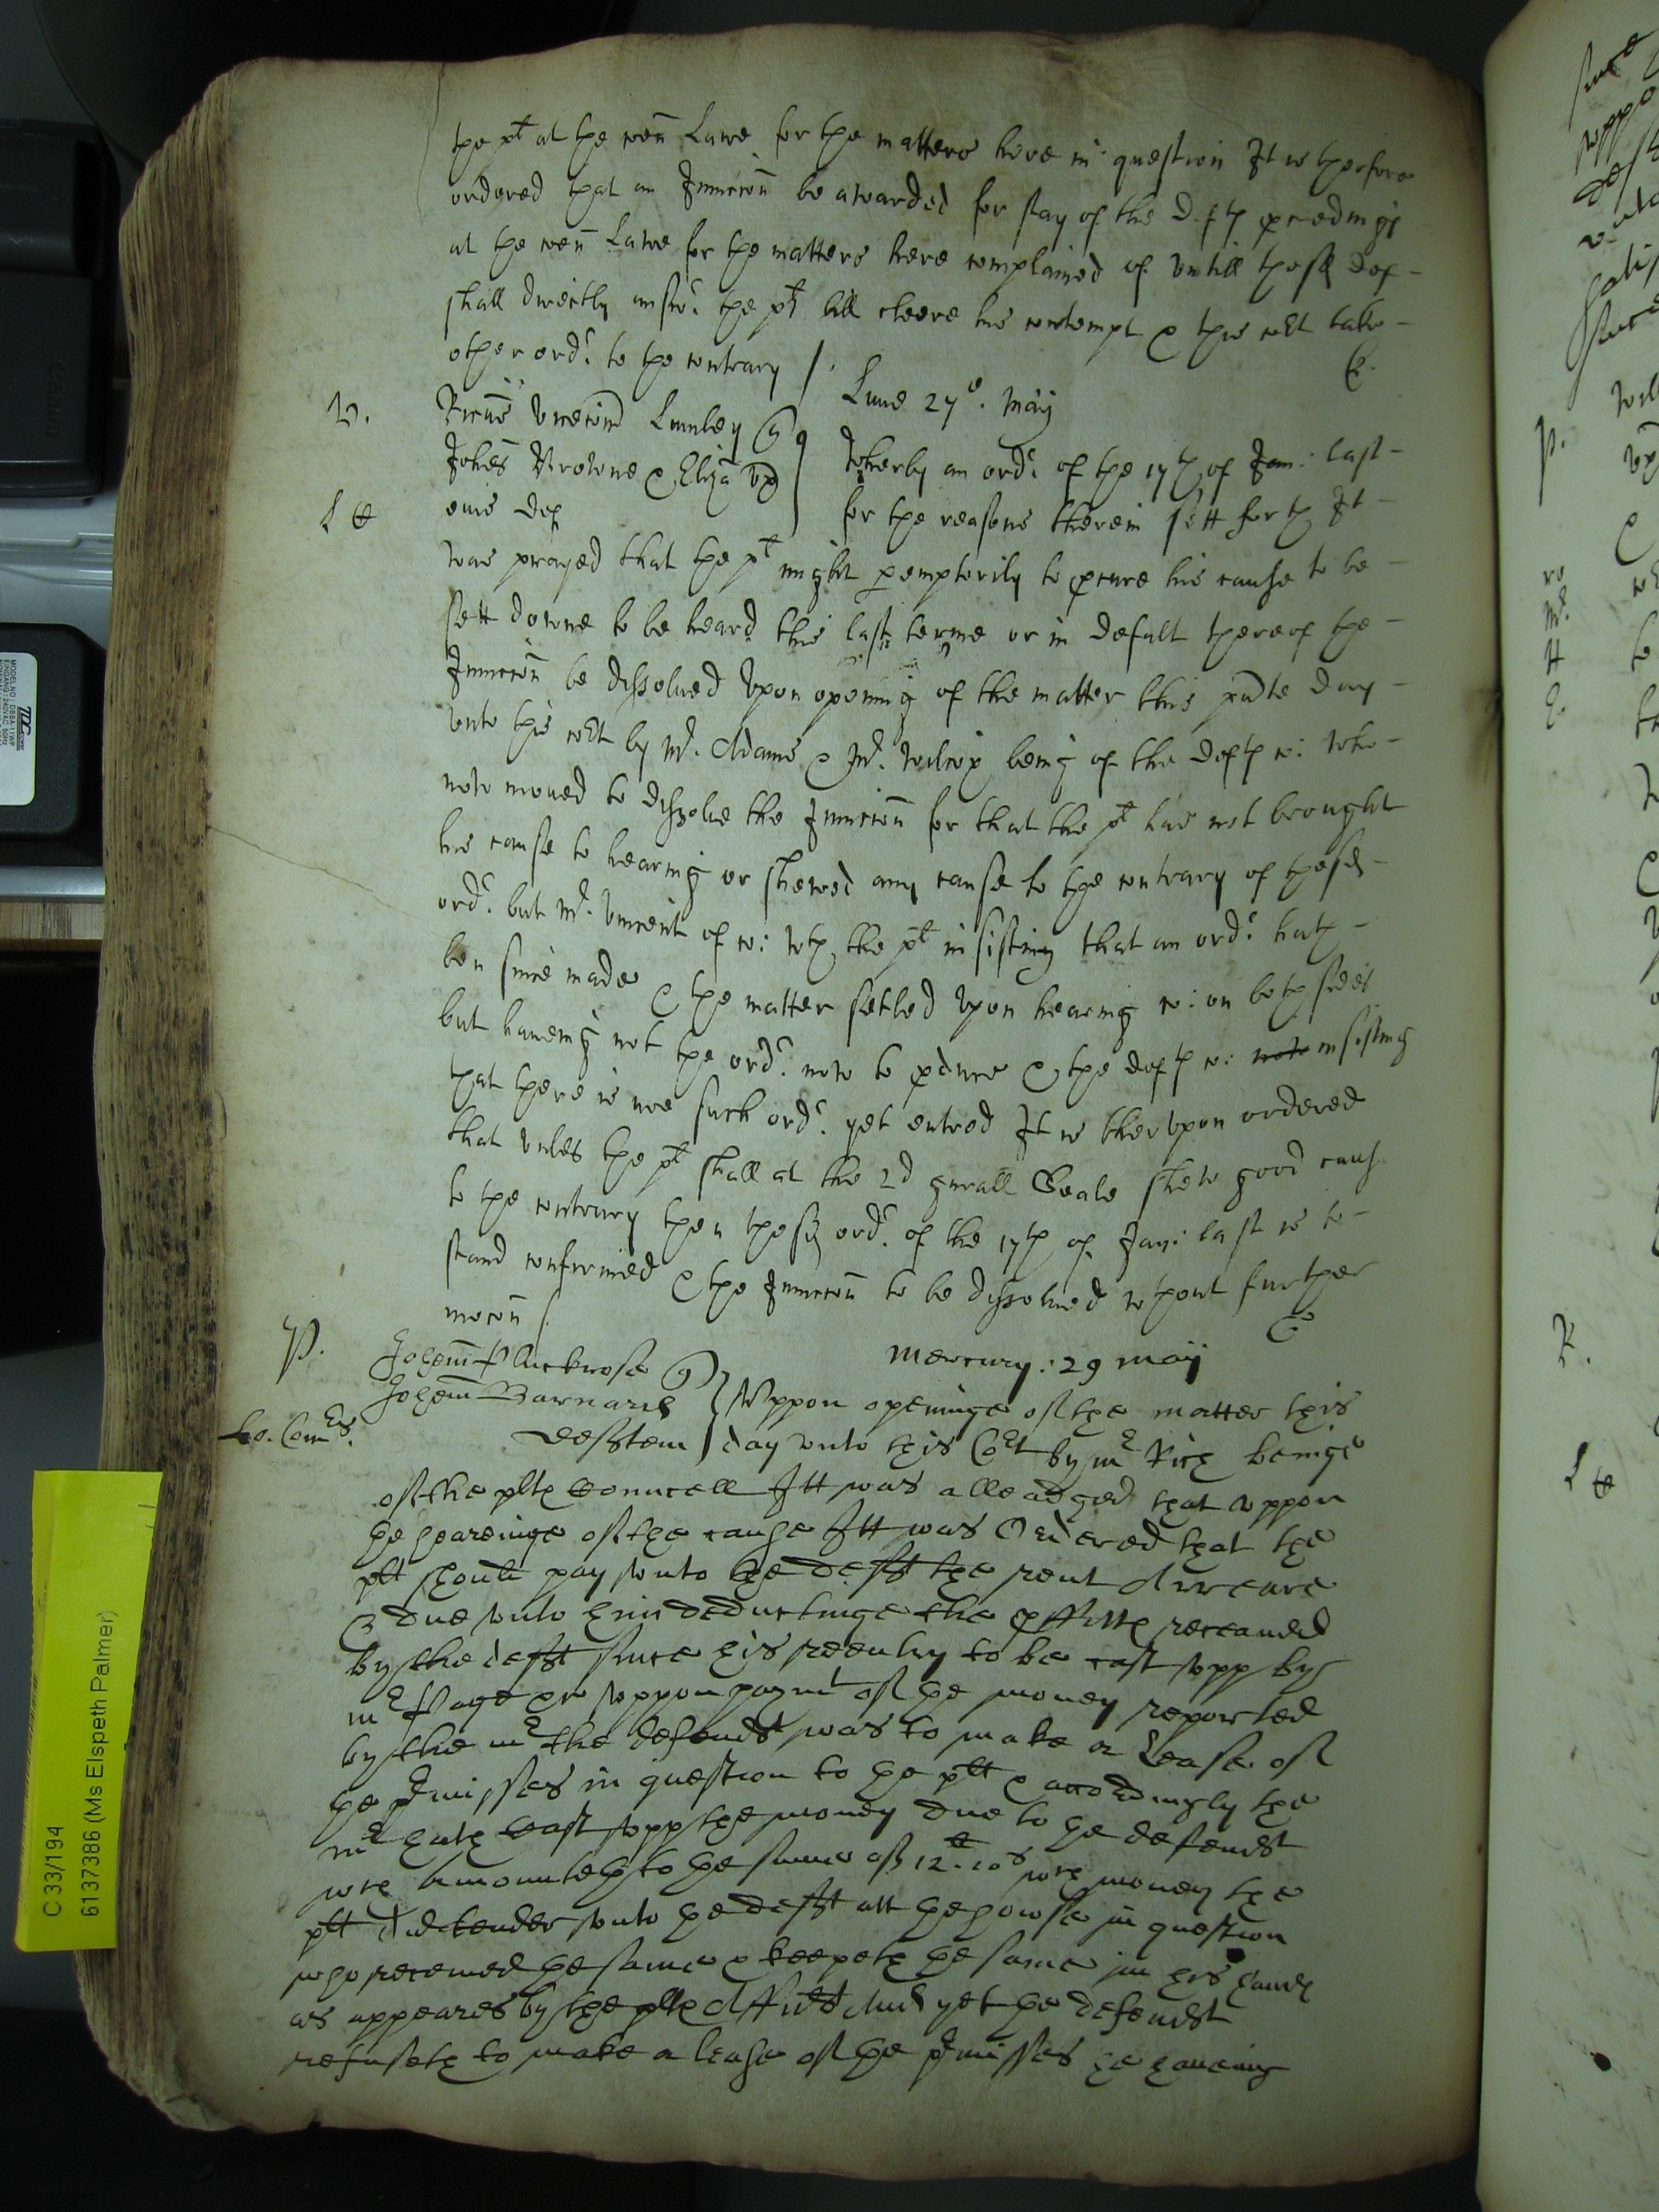 the plt at the com̄ Lawe for the matters here in question It is therfore
ordered that an Iniuncc̄on be awarded for stay of the Defts pceedings
at the com̄ Lawe for the matters here complained of Untill the sd Def
shall directly answr the plt bill cleere his contempt & this cort take
other ordr to the contrary /.
Lune 27o. May
V.
Ricus Vicecom̄ Lumley
Johes Browne & Eliza vx
L
eius Def
Wherby an ordr of the 17th of Jan: last
for the reasons therein sett forth It
was prayed that the plt might pemptorily to pcure his cause to be
sett downe to be heard this last terme or in defalt thereof the
Iniuncc̄on be dissolued Vpon opening of the matter this pn̄te day
vnto this cort by Mr. Adams & Mr. Wilcox being of the Defts co: who
now moued to dissolue the Iniuncc̄on for that the plt has not brought
his cause to hearing or shewed any cause to the contrary of the sd
ordr. but Mr. Vincent of co: wth the plt insisting that an ordr. hath
ben since made & the matter setled Vpon hearing co: on both sides
but haueing not the ordr. now to pduce & the Defts co: now insisting
that there is noe such ordr. yet entred It is thervpon ordered
that vnles the plt shall at the 2d gn̄rall Seale shew good caus
to the contrary then the sd ordr. of the 17th of Jan: last is to
stand confirmed & the Iniuncc̄on to be dissolued wthout further
moc̄on /.
P.
Johem̄ Pluckrose
Johem̄ Barnard
Lo. Comrs.
defftem
Mercury: 29 May
Vppon openinge of the matter this
day vnto this Cort by mr Rich beinge
of the plts Councell Itt was alleadged that vppon
the heareinge of the cause Itt was Ordered that the
plt should pay vnto the defft the rent Arreare
& due vnto him deductinge the pffitts receaued
by the defft since his reentry to be cast vpp by
mr Page & vppon paymt of the money reported
by the mr the defendt was to make a Lease of
the pmisses in question to the plt & accordingly the
mr hath Cast vpp the money due to the defendt
wch Amounteth to the summe of 12li. 10s wch money the
plt did tender vnto the defft att the howse in question
who receiued the same & keepeth the same in his hands
as appeares by the plts Affidt And yet the defendt
refuseth to make a lease of the pmisses he haueing
C 33/194
6137386 (Ms Elspeth Palmer)